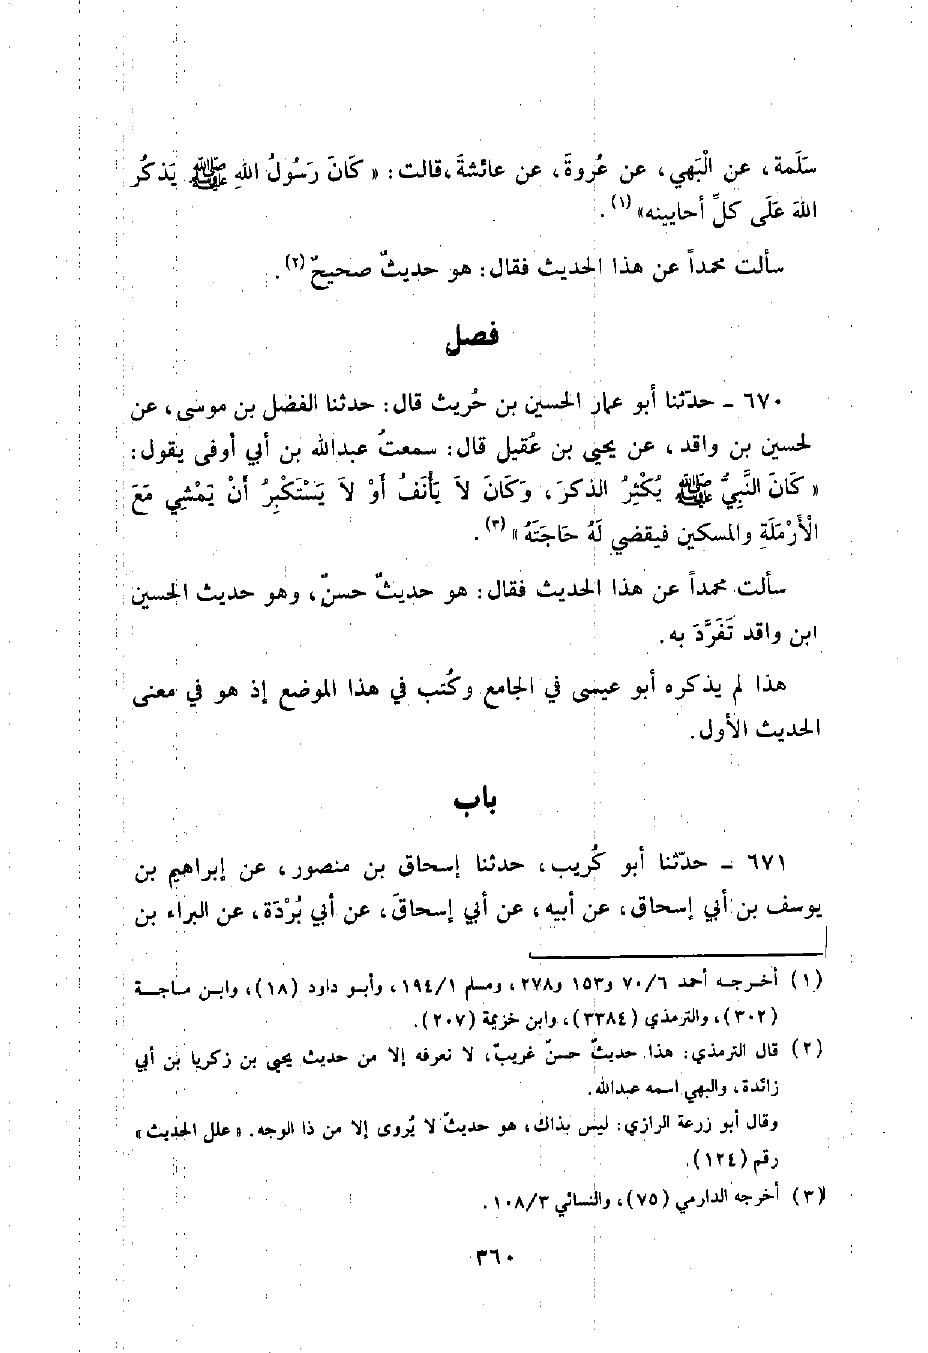 سَلَمة، عن الْبَهي، عن عُروةَ، عن عائشةَ،قالت: « كَانَ رَسُولُ اللهِ ﷺ يَذكُر
اللهَ عَلَى كلِّ أحايينه» (١) .
سألت محمداً عن هذا الحديث فقال: هو حديثٌ صحيحٌ (٢) .
فصل
٦٧٠ ـ حدّثنا أبو عمار الحسين بن حُريث قال: حدثنا الفضل بن موسى، عن
لحسين بن واقد، عن يحيى بن عُقيل قال: سمعتُ عبدالله بن أبي أوفى يقول:
« كَانَ النَّبِيُّ ﷺ يُكْثِرُ الذكرَ، وَكَانَ لاَ يَأْنَفُ أَوْ لاَ يَسْتَكْبِرُ أَنْ يَمْشِي مَعَ
الْأَرْمَلَةِ والمسكين فيقضي لَهُ حَاجَتَهُ » (٣) .
سألت محمداً عن هذا الحديث فقال: هو حديثٌ حسنٌ، وهو حديث الحسين
ابن واقد تَفَرَّدَ به.
هذا لم يذكره أبو عيسى في الجامع وكُتب في هذا الموضع إذ هو في معنى
الحديث الأول.
باب
٦٧١ ـ حدّثنا أبو كُريب، حدثنا إسحاق بن منصور، عن إبراهيم بن
يوسف بن أبي إسحاق، عن أبيه، عن أبي إسحاقَ، عن أبي بُرْدَة، عن البراء بن
(١) أخرجه أحمد ٧٠/٦ و١٥٣ و٢٧٨، ومسلم ١٩٤/١، وأبو داود (١٨)، وابن ماجة
(٣٠٢)، والترمذي (٣٣٨٤)، وابن خزيمة (٢٠٧).
(٢) قال الترمذي: هذا حديثٌ حسنٌ غريبٌ، لا نعرفه إلا من حديث يحيى بن زكريا بن أبي
زائدة، والبهي اسمه عبدالله.
وقال أبو زرعة الرازي: ليس بذاك، هو حديثٌ لا يُروى إلا من ذا الوجه. « علل الحديث »
رقم (١٢٤).
(٣) أخرجه الدارمي (٧٥)، والنسائي ١٠٨/٣.
٣٦٠